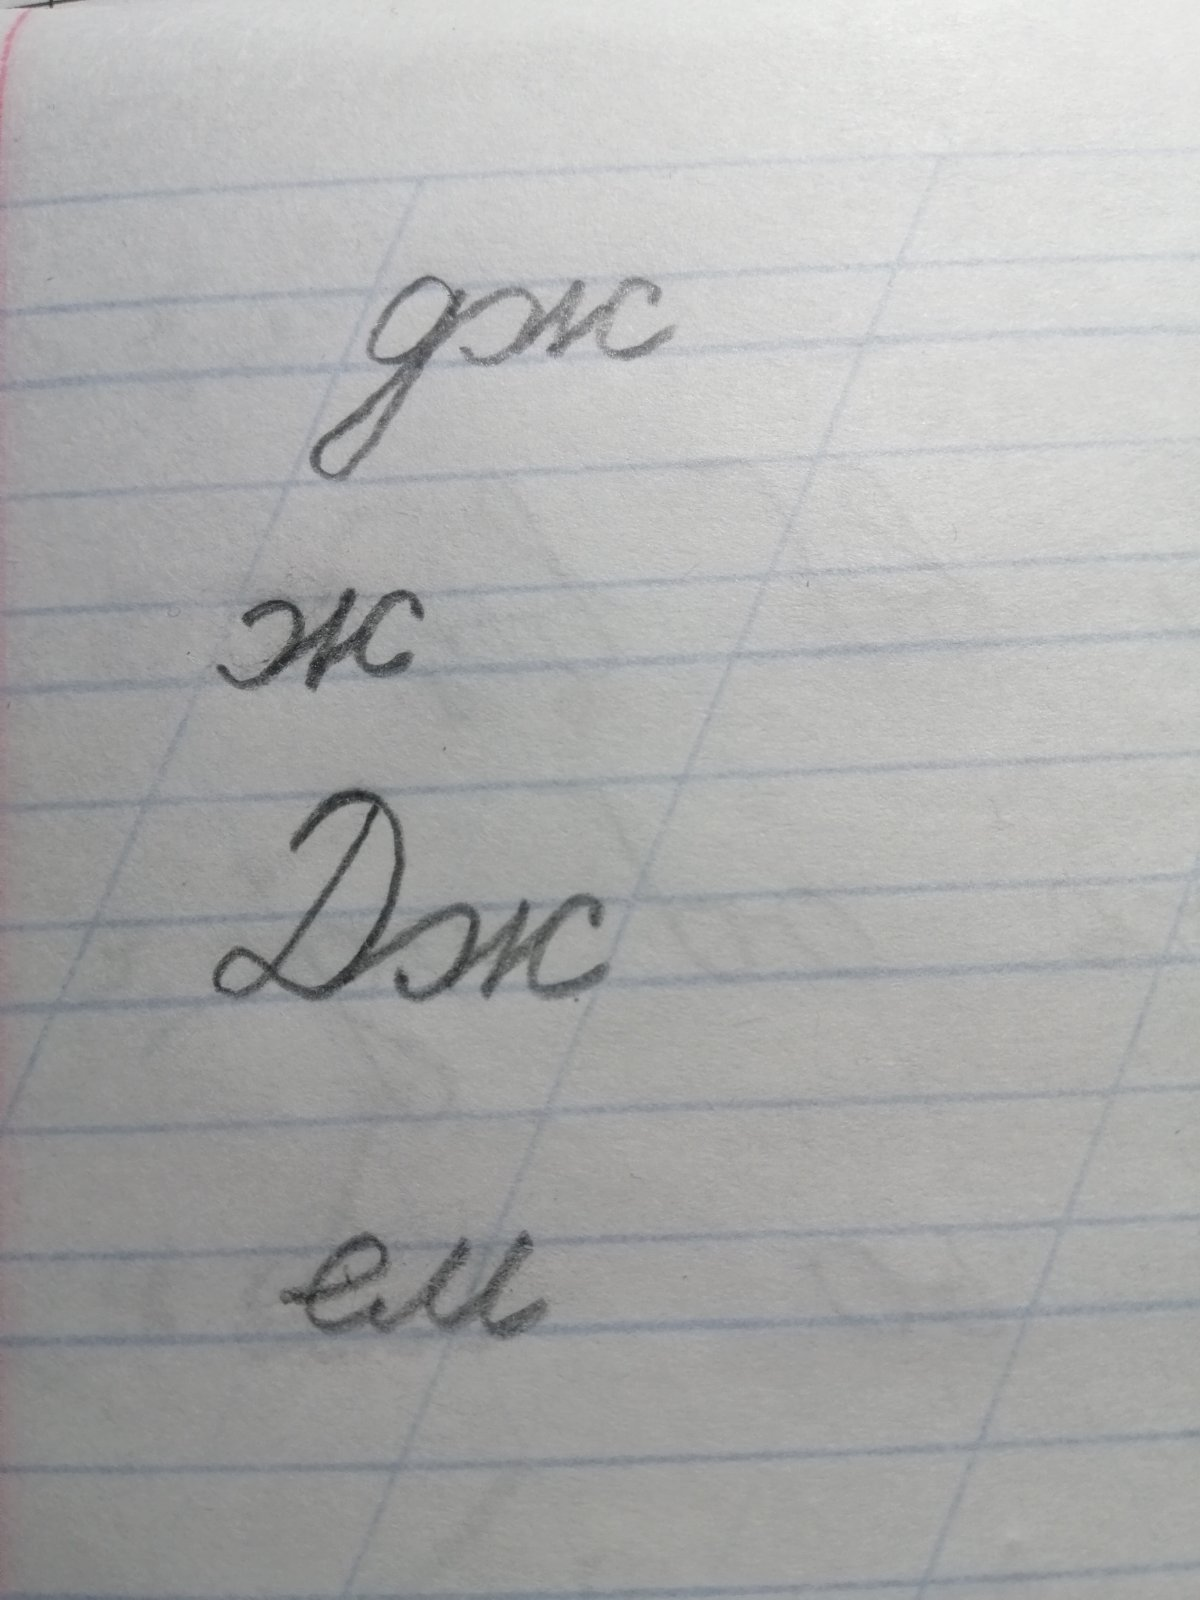 дж
ж
Дж
ем